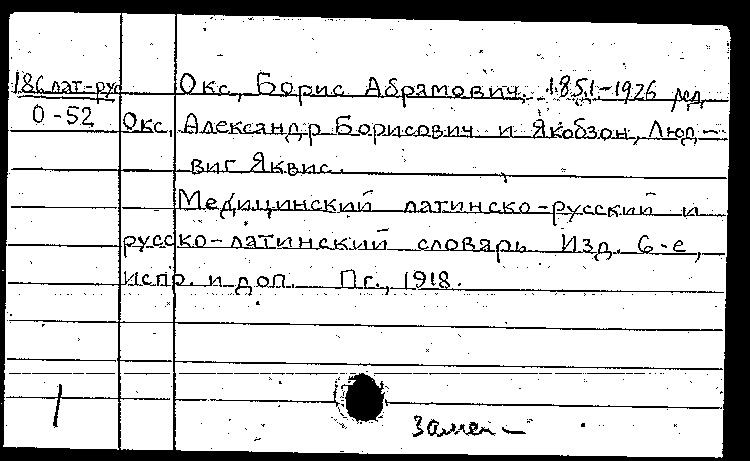 18б лат-рус Окс, Борис Абрамович. 1851-1926 ред.
О-52 Окс, Александр Борисович и Якобзон, Люд-
виг Яквис.
Медицинский латинско-русский и
русско-латинский словарь Изд. 6-е,
испр. и доп. Пг., 1918.
1
Замен